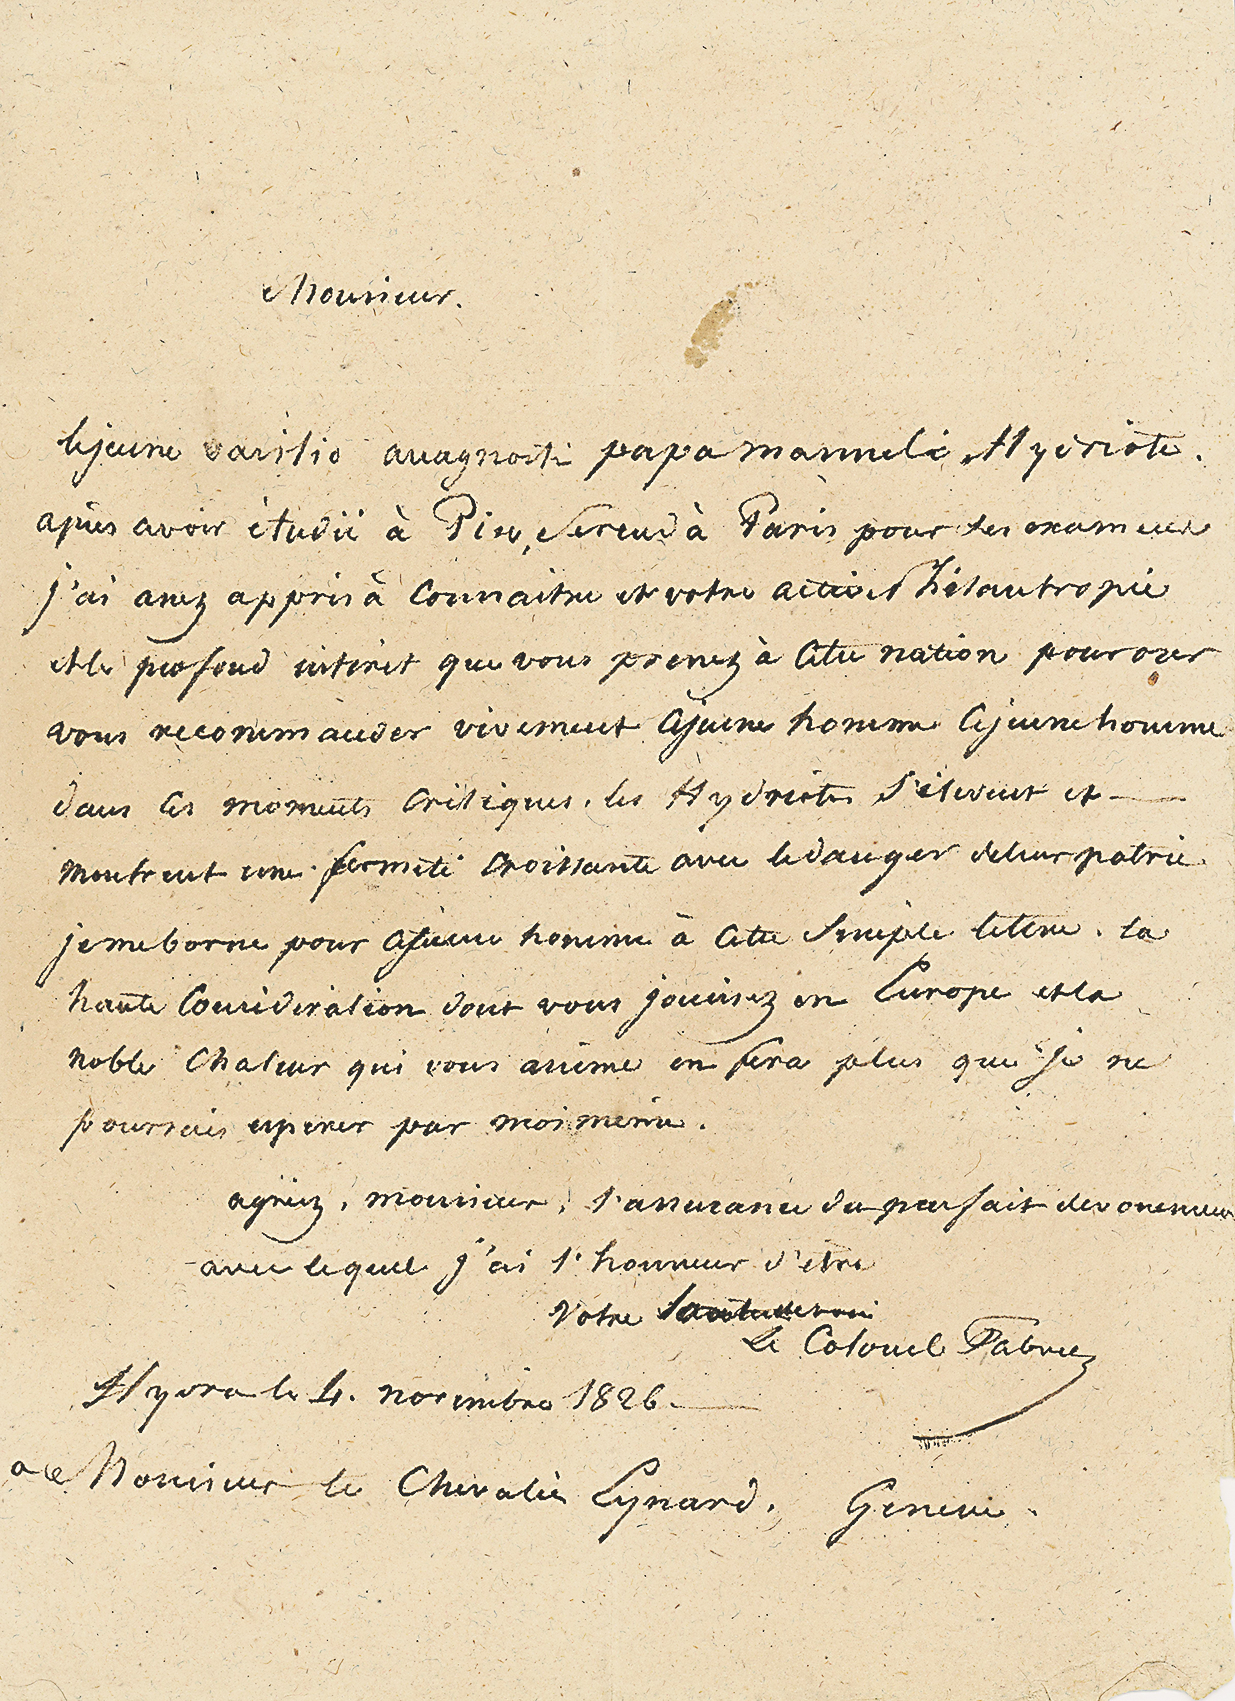 Monsieur.
le jeune vasilio anagnosti papa manueli, Hydriote.
apres avoir étudié à Pise, se rend à Paris pour ses examens
j'ai assez appris à connaitre et votre active Philantropie
et le profond intérêt que vous prenez à cette nation pour oser
vous recommander vivement ce jeune homme ce jeune homme
dans ces moments critiques. les Hydriotes s'élevent et
montrent une fermeté croissante avec le danger de leur patrie
je me borne pour ce jeune homme à cette simple lettre. la
haute Considération dont vous jouissez en Europe et la
noble chaleur qui vous anime en fera plus que je ne
pourrais esperer par moi meme.
agréez, monsieur, l'assurance du parfait devouement
avec lequel j'ai l'honneur d'etre
Votre
Le Colonel Fabvier
Hydra le 4. novembre 1826.
a Monsieur le Chevalier Eynard. Geneve.